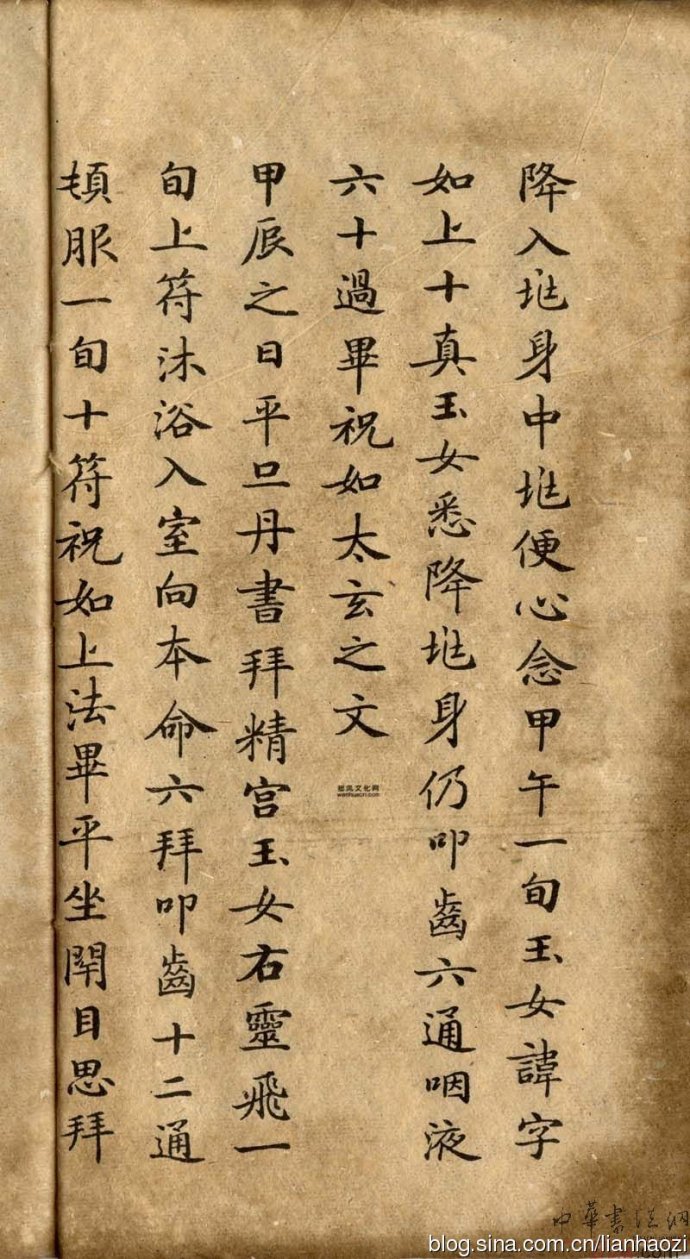 降入兆身中兆便心念甲午一旬玉女諱字
如上十真玉女悉降兆身仍叩齒六通咽液
六十過畢祝如太玄之文
甲辰之日平旦丹書拜精宫玉女右靈飛一
旬上符沐浴入室向本命六拜叩齒十二通
頓服一旬十符祝如上法畢平坐閇目思拜
wenhuacn.com
中華書法網
blog.sina.com.cn/lianhaozi